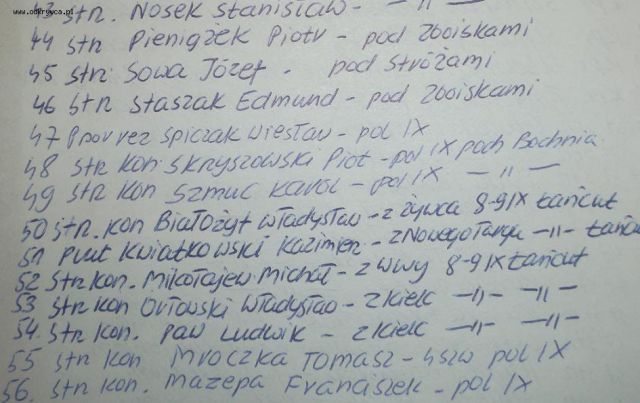 www.odkrywca.pl
43 str. Nosek Stanisław - -"-
44 str Pieniążek Piotr - pod Zboiskami
45 str. Sowa Józef - pod Stróżami
46 str. Staszak Edmund - pod Zboiskami
47 Ppor rez Spiczak Wiesław - pol IX
48 str kon. Skryszowski Piot - pol IX poch Bochnia
49 str kon Szmuc Karol - pol IX -"-
50 str. kon Białożyt Władysław - z Żywca 8-9 IX Łańcut
51 Kwiatkowski Kazimierz - z Nowego Targu -"- Łańcu
52 str kon. Mikołajew Michał - z Wwy 8-9 IX Łańcut
53 str kon Orłowski Władysław - z Kielc -"- -"-
54. str kon. Paw Ludwik - z Kielc -"- -"-
55 str kon Mroczka Tomasz - 4szw pol IX
56. str kon. Mazepa Franciszek - pol IX